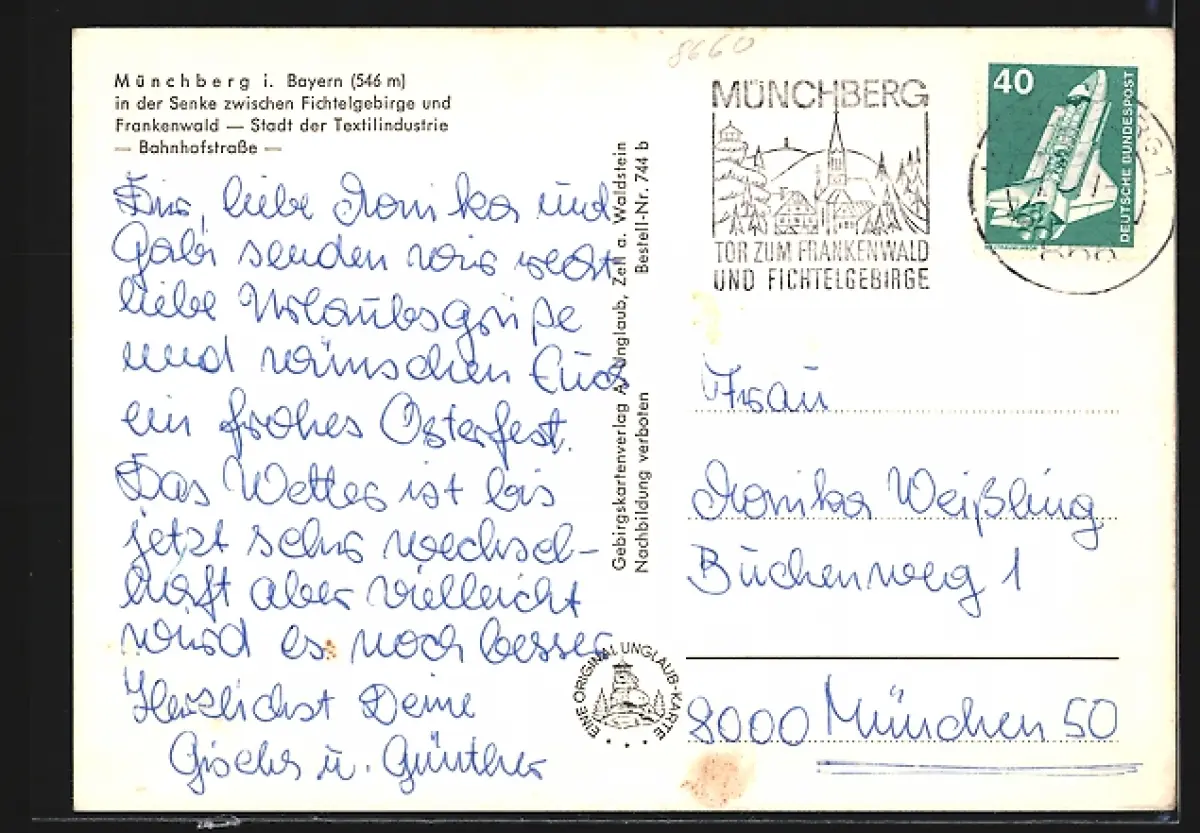 8660
Münchberg i. Bayern (546 m)
in der Senke zwischen Fichtelgebirge und
Frankenwald — Stadt der Textilindustrie
— Bahnhofstraße —
Dir, liebe Monika und
Gabi senden wir recht
liebe Urlaubsgrüße
und wünschen Euch
ein frohes Osterfest.
Das Wetter ist bis
jetzt sehr wechsel-
haft aber vielleicht
wird es noch besser
Herzlichst Deine
Gisela u. Günther
Gebirgskartenverlag A. Unglaub, Zell a. Waldstein
Nachbildung verboten Bestell-Nr. 744 b
EINE ORIGINAL UNGLAUB-KARTE
MÜNCHBERG
TOR ZUM FRANKENWALD
UND FICHTELGEBIRGE
40
DEUTSCHE BUNDESPOST
Frau
Monika Weißling
Buchenweg 1
8000 München 50